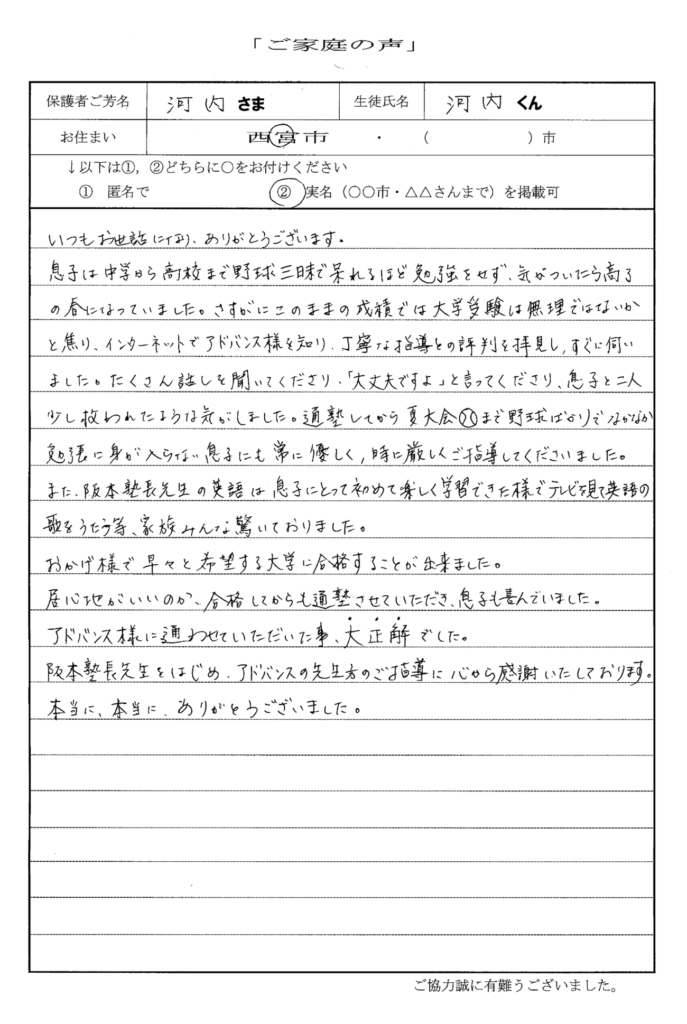 「ご家庭の声」
保護者ご芳名 河内 さま 生徒氏名 河内 くん
お住まい 西宮市 ・ ( )市
↓以下は①，②どちらに○をお付けください
① 匿名で ② 実名（○○市・△△さんまで）を掲載可
いつもお世話になり、ありがとうございます。
息子は中学から高校まで野球三昧で呆れるほど勉強をせず、気がついたら高3
の春になっていました。さすがにこのままの成績では大学受験は無理ではないか
と焦り、インターネットでアドバンス様を知り、丁寧な指導との評判を拝見し、すぐに伺い
ました。たくさん話しを聞いてくださり、「大丈夫ですよ」と言ってくださり、息子と二人
少し救われたような気がしました。通塾してから夏大会まで野球ばかりでなかなか
勉強に身が入らない息子にも常に優しく、時に厳しくご指導してくださいました。
また、阪本塾長先生の英語は息子にとって初めて楽しく学習できた様でテレビを見て英語の
歌をうたう等、家族みんな驚いておりました。
おかげ様で早々と希望する大学に合格することが出来ました。
居心地がいいのか、合格してからも通塾させていただき、息子も喜んでいました。
アドバンス様に通わせていただいた事、大正解でした。
阪本塾長先生をはじめ、アドバンスの先生方のご指導に心から感謝いたしております。
本当に、本当に、ありがとうございました。
ご協力誠に有難うございました。